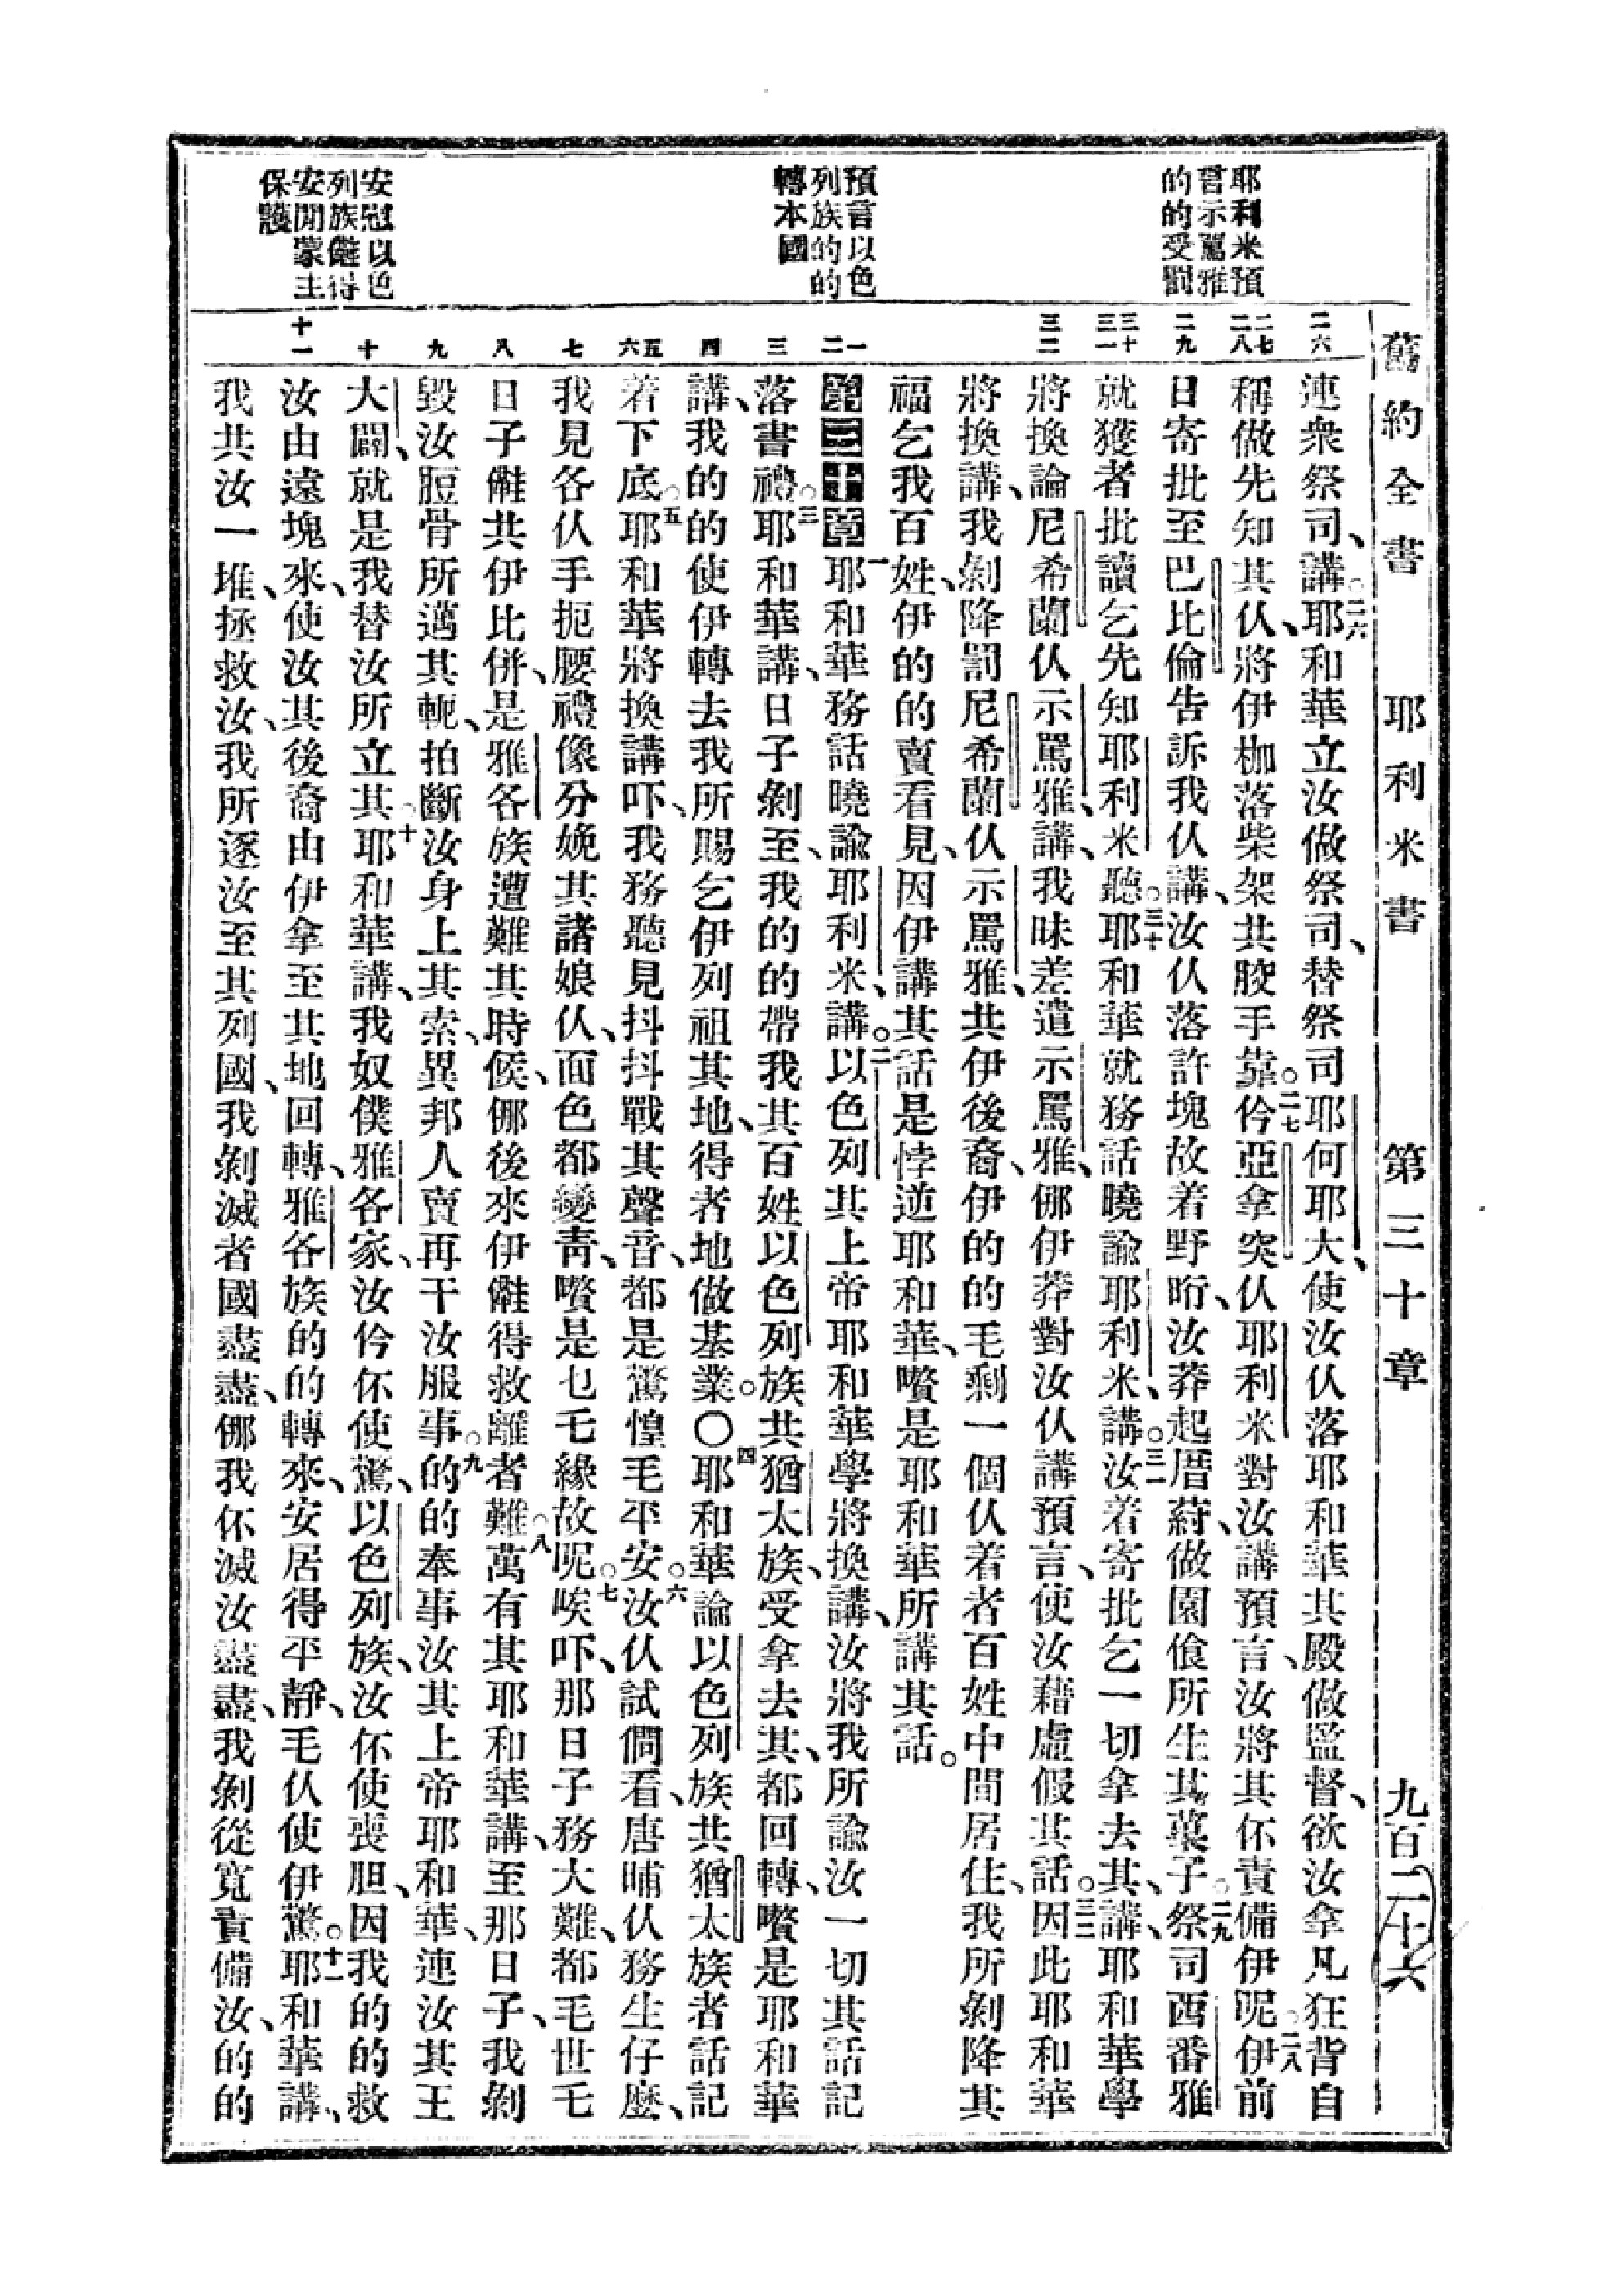 舊約全書 耶利米書 第三十章 九百二十六
耶利米預
言示罵雅
的的受罰
預言以色
列族的的
轉本國
安慰以色
列族儺得
安閒蒙主
保護
二六
二七
二八
二九
三十
三一
三二
一
二
三
四
五
六
七
八
九
十
十一
連衆祭司、講。二六耶和華立汝做祭司、替祭司耶何耶大、使汝仈落耶和華其殿做監督、欲汝拿凡狂背自
稱做先知其仈、將伊枷落柴架共骹手靠。二七仱亞拿突仈耶利米對汝講預言、汝將其伓責備伊呢。二八伊前
日寄批至巴比倫告訴我仈講、汝仈落許塊故着野䀪、汝莽起厝蒔、做園飡所生其菓子。二九祭司西番雅
就獲者批讀乞先知耶利米聽。三十耶和華就務話曉諭耶利米、講。三一汝着寄批乞一切拿去其、講、耶和華學
將換論尼希蘭仈示罵雅、講、我昧差遣示罵雅、倻伊莽對汝仈講預言、使汝藉虛假其話。三二因此耶和華
將換講、我剝降罰尼希蘭仈示罵雅、共伊後裔、伊的的毛剩一個仈着者百姓中間居住、我所剝降其
福乞我百姓、伊的的賣看見、因伊講其話是悖逆耶和華、嚽是耶和華所講其話。
第三十章 一耶和華務話曉諭耶利米、講。二以色列其上帝耶和華學將換講、汝將我所諭汝一切其話記
落書禮。三耶和華講、日子剝至、我的的帶我其百姓以色列族共猶太族、受拿去其、都回轉、嚽是耶和華
講、我的的使伊轉去我所賜乞伊列祖其地、得者地做基業。〇四耶和華論以色列族共猶太族者話記
着下底。五耶和華將換講吓、我務聽見抖抖戰其聲音、都是驚惶毛平安。六汝仈試僩看、唐晡仈務生仔麽、
我見各仈手扼腰禮像分娩其諸娘仈、面色都變靑、嚽是乜毛緣故呢。七唉吓、那日子務大難、都毛世毛
日子儺共伊比併、是雅各族遭難其時候、倻後來伊儺得救離者難。八萬有其耶和華講、至那日子、我剝
毀汝脰骨所邁其軛、拍斷汝身上其索、異邦人賣再干汝服事。九的的奉事汝其上帝耶和華、連汝其王
大闢、就是我替汝所立其。十耶和華講、我奴僕雅各家、汝仱伓使驚、以色列族、汝伓使喪胆、因我的的救
汝由遠塊來、使汝其後裔由伊拿至其地回轉、雅各族的的轉來、安居得平靜、毛仈使伊驚。十一耶和華講、
我共汝一堆、拯救汝、我所逐汝至其列國、我剝滅者國盡盡、倻我伓滅汝盡盡、我剝從寬責備汝、的的